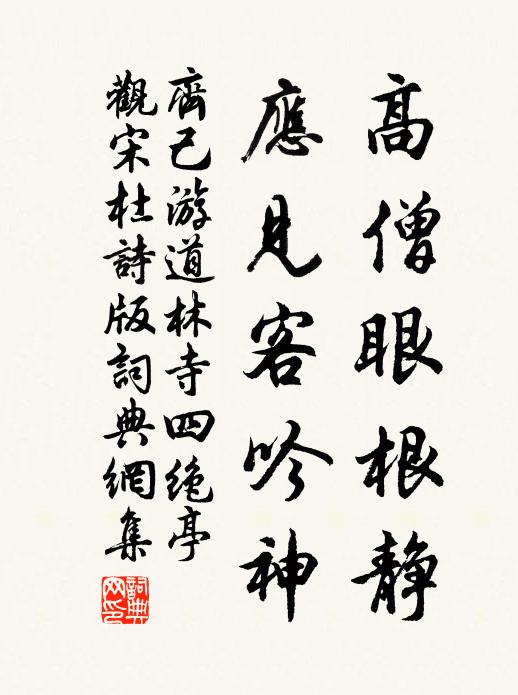 高僧眼根静
應見客吟神
齊己游道林寺四絶亭
觀宋杜詩版詞典網集
詞典网印